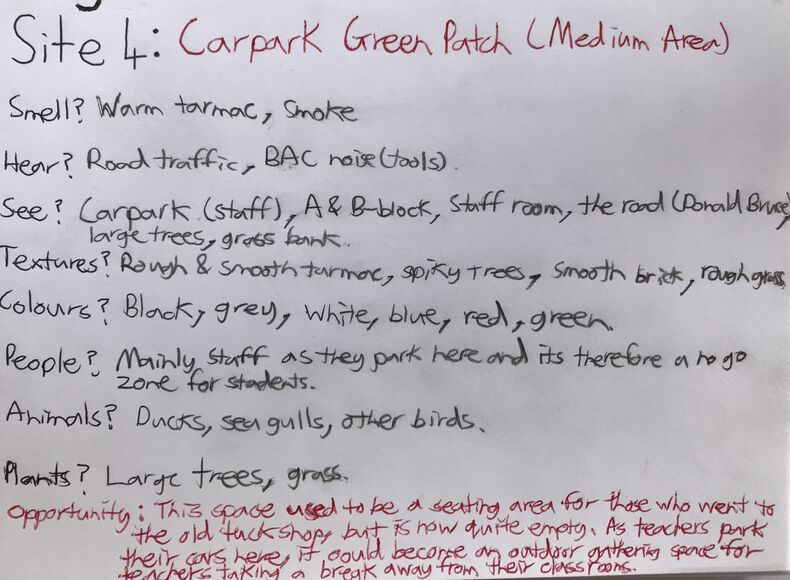 Site 4: Carpark Green Patch (Medium Area)
Smell? Warm tarmac, Smoke
Hear? Road traffic, BAC noise (tools).
See? Carpark (staff), A & B-block, Staff room, the road (Donald Bruce),
large trees, grass bank.
Textures? Rough & smooth tarmac, spiky trees, smooth brick, rough grass
Colours? Black, grey, white, blue, red, green.
People? Mainly staff as they park here and its therefore a no go
zone for students.
Animals? Ducks, sea gulls, other birds.
Plants? Large trees, grass.
Opportunity: This space used to be a seating area for those who went to
the old tuckshop, but is now quite empty. As teachers park
their cars here, it could become an outdoor gathering space for
teachers taking a break away from their classrooms.